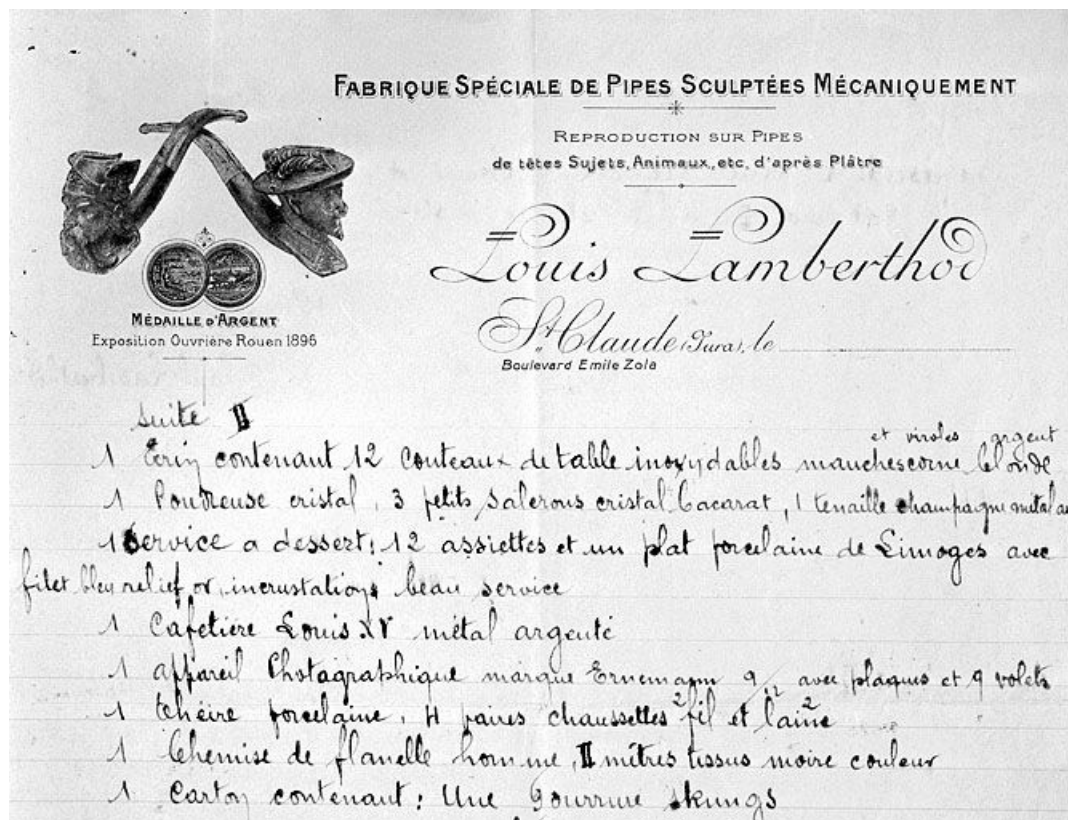 FABRIQUE SPÉCIALE DE PIPES SCULPTÉES MÉCANIQUEMENT
REPRODUCTION SUR PIPES
de têtes Sujets, Animaux, etc, d'après Plâtre
Louis Lamberthod
St Claude (Jura), le
Boulevard Emile Zola
MÉDAILLE D'ARGENT
Exposition Ouvrière Rouen 1896
suite II
et viroles argent
1 Écrin contenant 12 couteaux de table inoxydables manches corne blonde
1 Poudreuse cristal, 3 petits salerons cristal bacarat, 1 tenaille champagne métal
1 Service a dessert: 12 assiettes et un plat porcelaine de Limoges avec
filet bleu relief or, incrustations beau service
1 Cafetière Louis XV métal argenté
1 appareil Photagraphique marque Ernemann 9/12 avec plaques et 9 volets
1 théire porcelaine, 4 paires chaussettes 2 fil et 2 laine
1 Chemise de flanelle homme, II mètres tissus moire couleur
1 Carton contenant: Une skungs